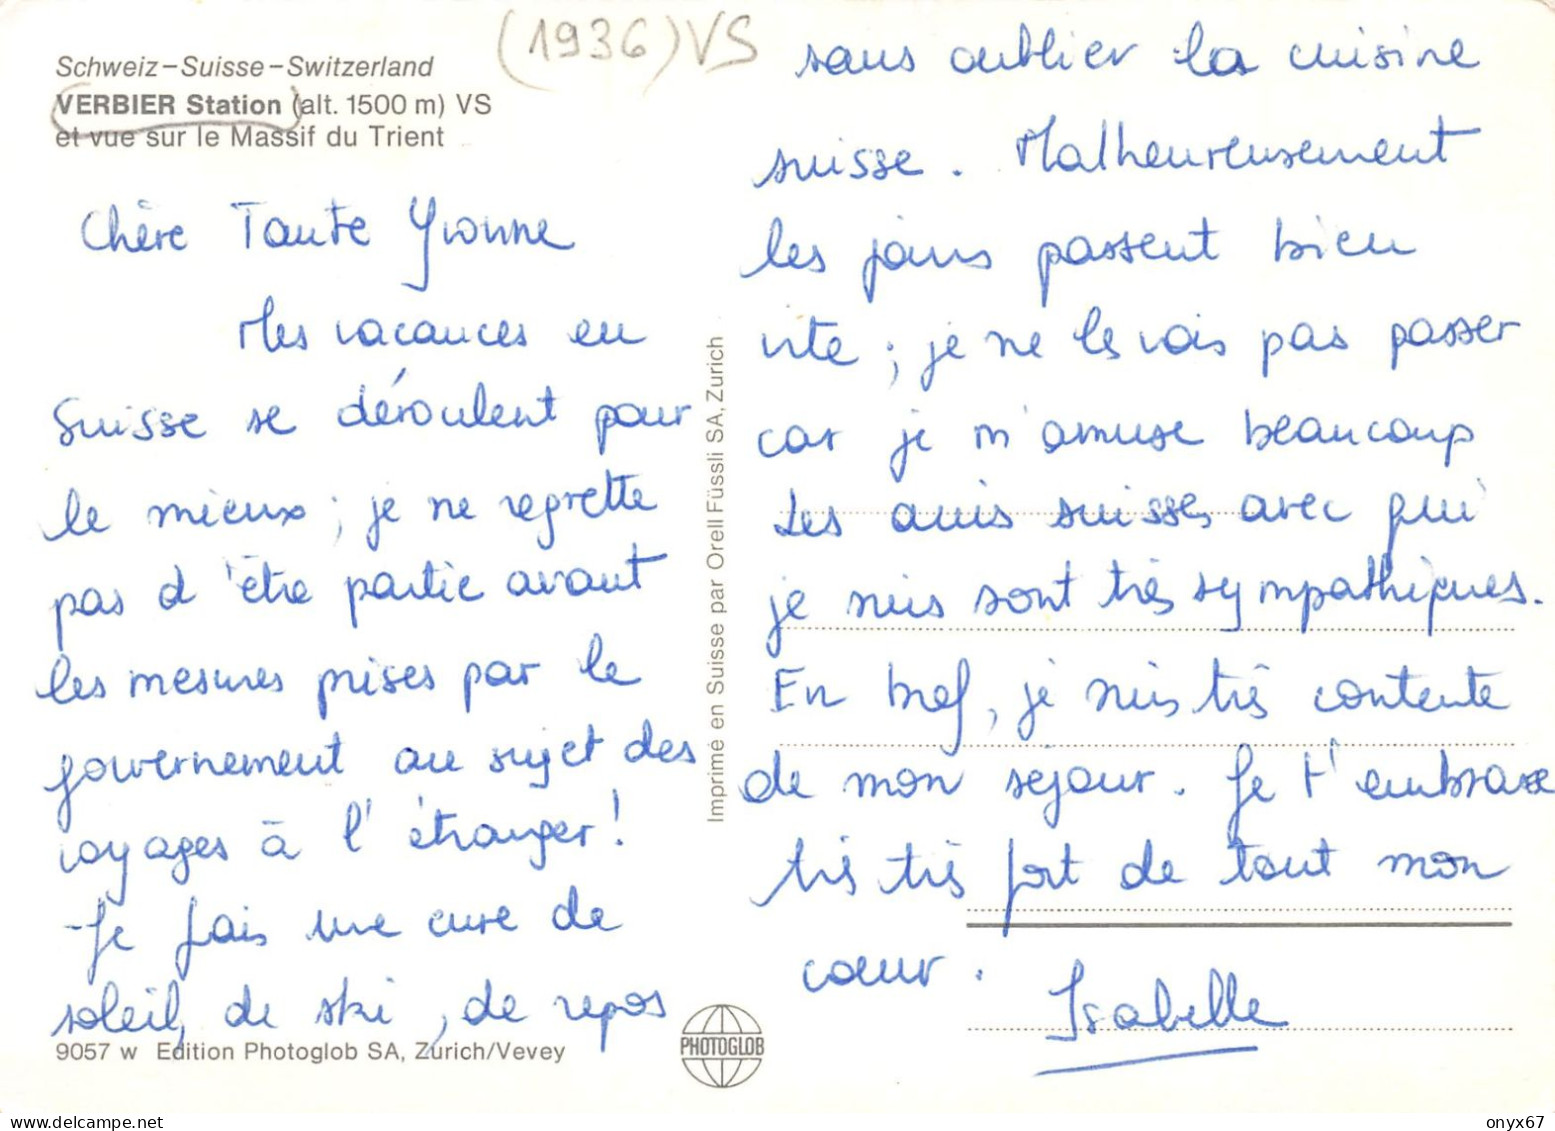 (1936) VS
Schweiz-Suisse-Switzerland
VERBIER Station (alt. 1500 m) VS
et vue sur le Massif du Trient
Chère Tante Yvonne
Mes vacances en
Suisse se déroulent pour
le mieux ; je ne regrette
pas d'être partie avant
les mesures prises par le
gouvernement au sujet des
voyages à l'étranger!
Je fais une cure de
soleil, de ski, de repos
9057 w Edition Photoglob SA, Zürich/Vevey
Imprimé en Suisse par Orell Füssli SA, Zurich
PHOTOGLOB
sans oublier la cuisine
suisse. Malheureusement
les jours passent bien
vite ; je ne les vois pas passer
car je m'amuse beaucoup
Les amis suisses avec qui
je suis sont très sympathiques.
En bref, je suis très contente
de mon séjour. Je t'embrasse
très très fort de tout mon
cœur.
Isabelle
delcampe.net
onyx67